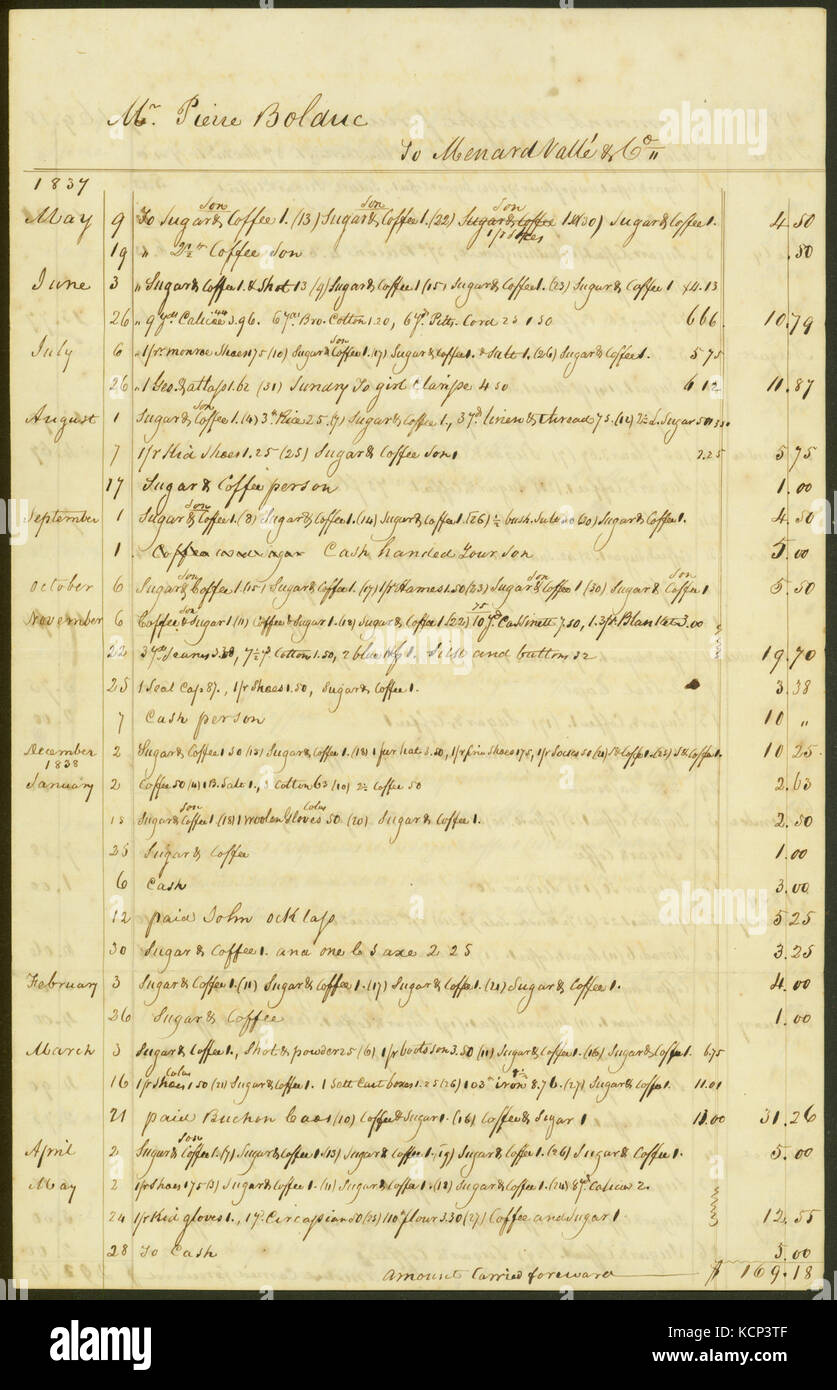 Mr. Pierre Bolduc
To Menard Vallé & Co
1837
May 9 To Sugar & Coffee 1. (13) Sugar & Coffee 1. (22) Sugar & Coffee 1. (30) Sugar & Coffee 1. 4.50
son son son
19 " 2½ Coffee Son .50
June 3 " Sugar & Coffee 1. & Shot 13 (9) Sugar & Coffee 1 (15) Sugar & Coffee 1. (23) Sugar & Coffee 1 4.13
26 " 9 yds Calicoe 3.96. 6 yds Bro. Cotton 1.20, 6 yd Cord 25 1.50 6.66. 10.79
July 6 " 1/pr monroe Shoes 175 (10) Sugar & Coffee 1. (17) Sugar & Coffee 1. & Salt 1. (26) Sugar & Coffee 1. 5 75
son
26 " 1 Geo. & atlas 1.62 (31) Sundry To girl Clarisse 4 50 6 12 11.87
August 1 Sugar & Coffee 1. (4) 25. (7) Sugar & Coffee 1., 3 yd linen & thread 75. (12) 2½ Sugar 50
son
7 1/pr Kid Shoes 1.25 (25) Sugar & Coffee Son 1 2.25 5 75
17 Sugar & Coffee person 1.00
September 1 Sugar & Coffee 1. (8) Sugar & Coffee 1. (14) Sugar & Coffee 1. (26) ½ bush Salt 50 (30) Sugar & Coffee 1. 4.50
son
1. Cash handed Your Son 5.00
October 6 Sugar & Coffee 1. (15) Sugar & Coffee 1. (17) 1/pr Hames 1.50 (23) Sugar & Coffee 1 (30) Sugar & Coffee 1 5.50
son son son
November 6 Coffee & Sugar 1 (11) Coffee & Sugar 1. (18) Sugar & Coffee 1 (22) 10 yd Cassinett 7.50, 1.3/pt Blanket 3.00
son 75
22 3 yds Jeanes, 7½ yd Cotton 1.50, 2 blue 1. Silk and buttons 32 19.70
25 1 Seal Cap 87., 1/pr Shoes 1.50, Sugar & Coffee 1. 3.38
7 Cash person 10 "
December 2 Sugar & Coffee 1 50 (13) Sugar & Coffee 1. (18) 1 fur hat 3.50, 1/pr fine Shoes 175, 1/pr Socks 50 (21) S & Coffee 1. (25) S & Coffee 1. 10 25
1838
January 2 Coffee 50 (4) 1 B. Salt 1., 3 Cotton 63 (10) 2½ Coffee 50 2.63
15 Sugar & Coffee 1 (18) 1 woolen Gloves 50 (20) Sugar & Coffee 1. 2.50
son Colas
25 Sugar & Coffee 1.00
6 Cash 3.00
12 paid John 5 25
30 Sugar & Coffee 1. and one axe 2 25 3.25
February 3 Sugar & Coffee 1. (11) Sugar & Coffee 1. (17) Sugar & Coffee 1. (21) Sugar & Coffee 1. 4.00
26 Sugar & Coffee 1.00
March 3 Sugar & Coffee 1., Shot & powder 25 (6) 1/pr boots son 3.50 (11) Sugar & Coffee 1. (16) Sugar & Coffee 1. 6.75
16 1/pr Shoes 1 50 (21) Sugar & Coffee 1. 1 Sett Cart boxes 1.25 (26) 103 iron 8.76. (27) Sugar & Coffee 1. 11.01
Colas
21 paid Buchon (10) Coffee & Sugar 1. (16) Coffee & Sugar 1 11.00 31.26
April 2 Sugar & Coffee 1. (7) Sugar & Coffee 1. (13) Sugar & Coffee 1. (19) Sugar & Coffee 1. (26) Sugar & Coffee 1. 5.00
son
May 2 1/pr Shoes 175 (3) Sugar & Coffee 1. (11) Sugar & Coffee 1. (18) Sugar & Coffee 1. (24) 8 yd Calicoe 2.
24 1/pr Kid gloves 1., 1 yd Circassian 50 (25) 110 flour 3.30 (27) Coffee and Sugar 1. 12.55
28 To Cash 5.00
Amount Carried foreward $ 169.18
alamy
Image ID: KCP3TF
www.alamy.com